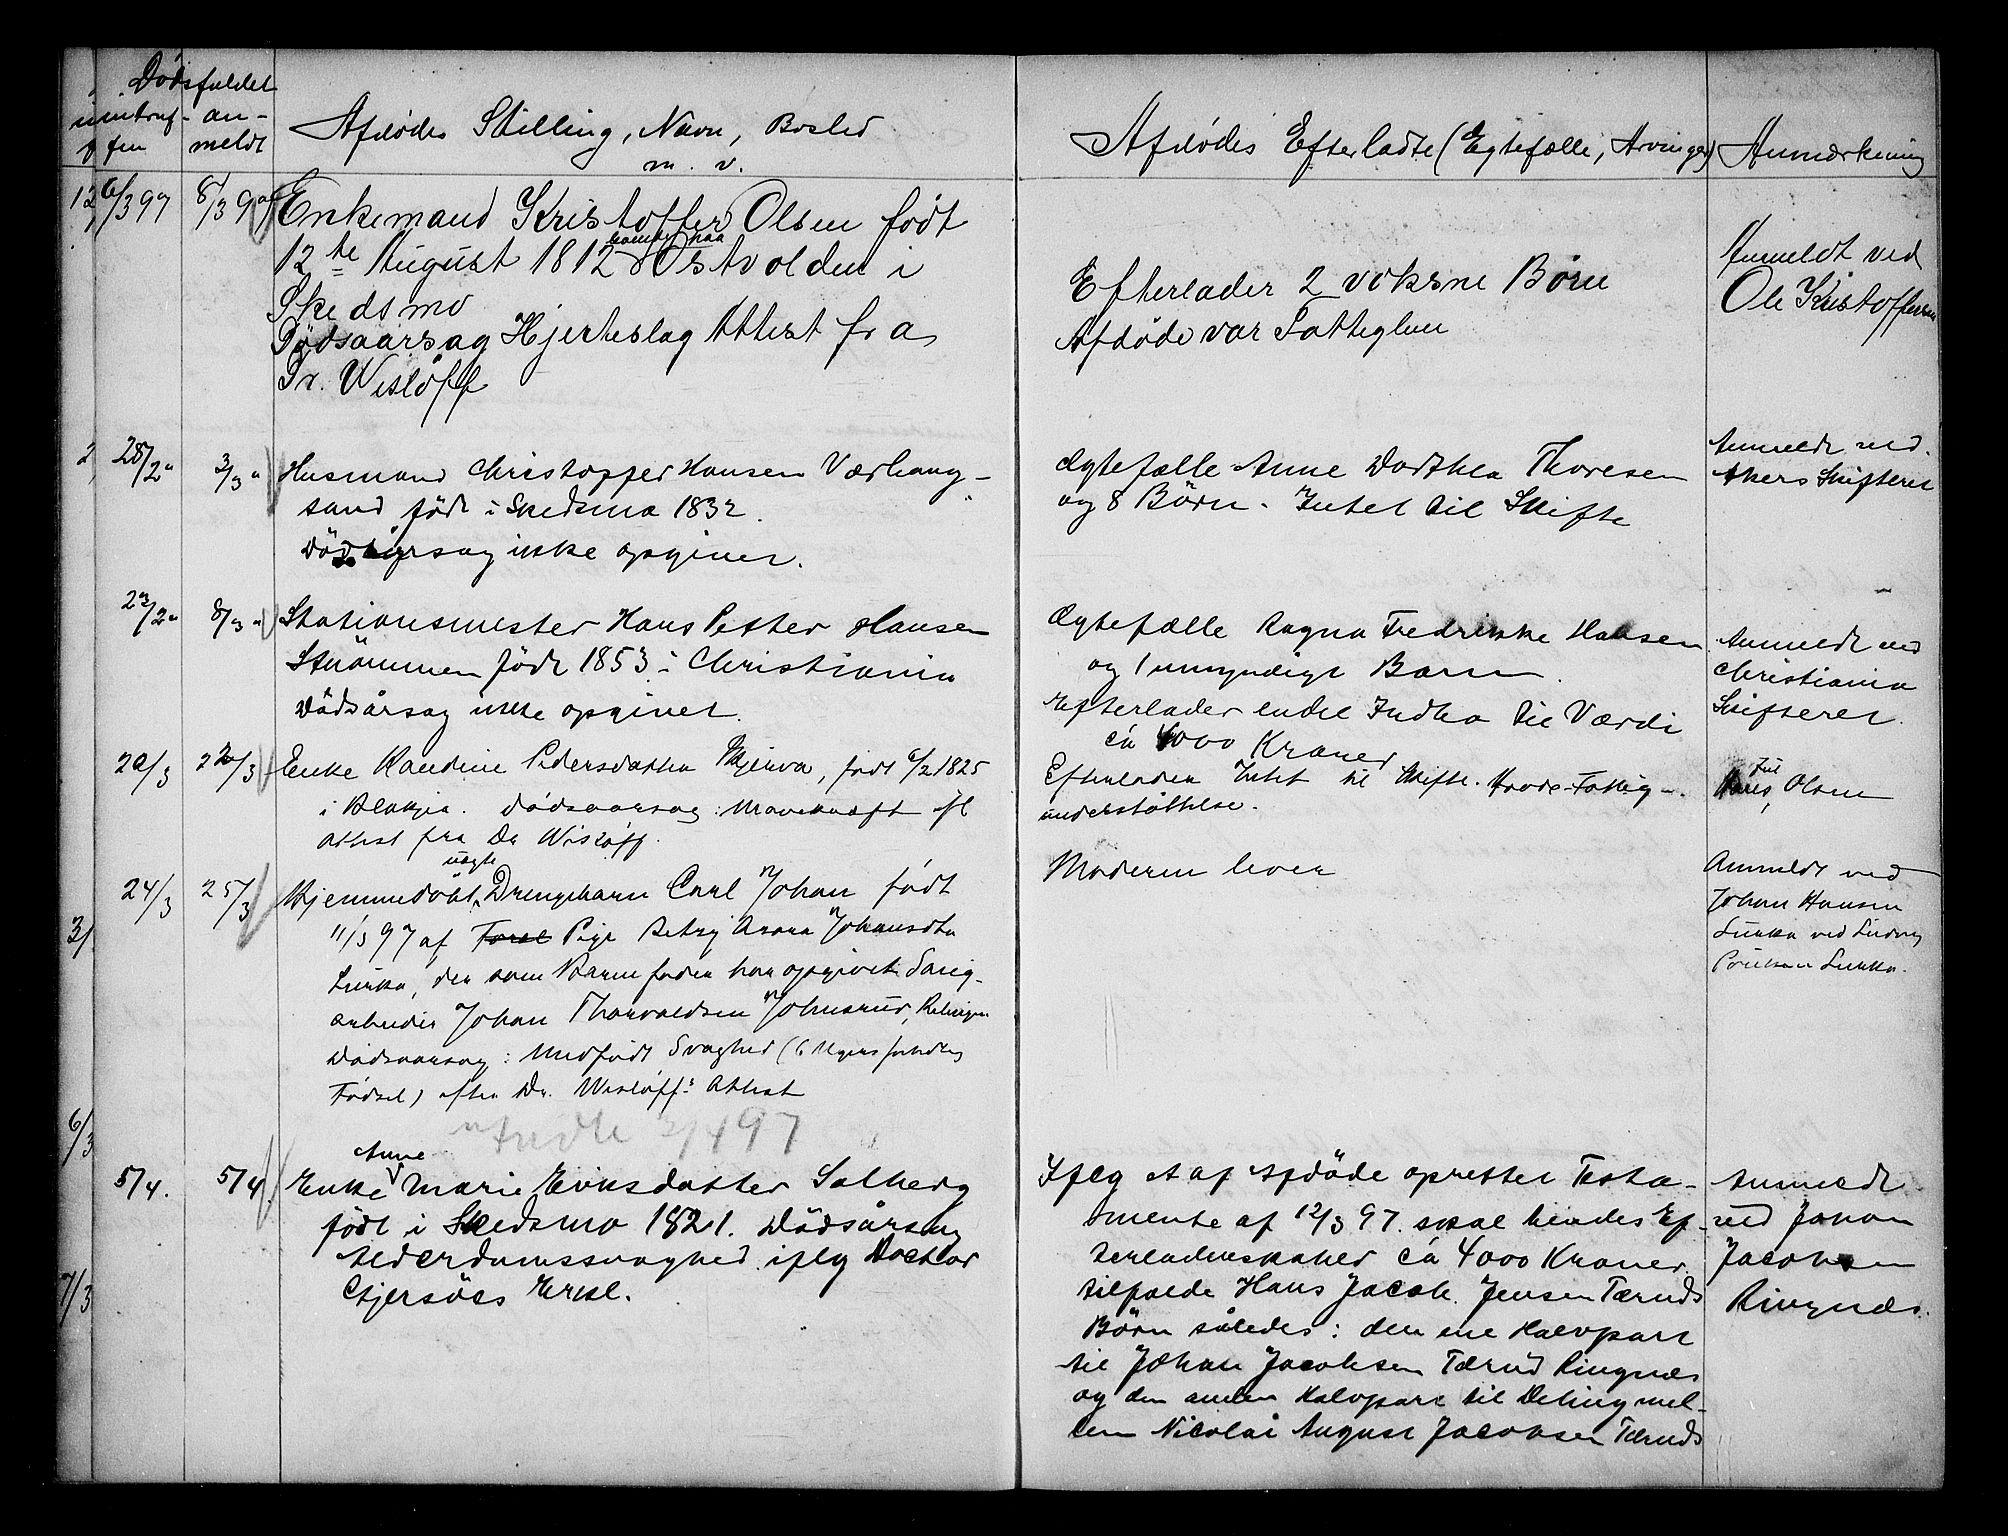 Dödsfaldet
indtruf- an-
fen meldt
Afdødes Stilling, Navn, Bosted
m. v.
Afdødes Efterladte (Egtefælle, Arvinger)
Anmærkning
6/3 97 8/3 97 Enkemand Kristoffer Olsen født
12te August 1812 Østvolden i
Skedsmo
Dødsaarsag Hjerteslag Attest fra
Dr. Wisløff
Efterlader 2 voksne Børn
Afdøde var Fattiglem
Anmeldt ved
Ole Kristoffersen
28/2 " 3/3 " Husmand Christopher Hansen Værhaug-
sand född i Skedsmo 1832.
Dødsårsag ikke opgivet.
Ægtefælle Anne Dorthea Thoresen
og 8 Börn. Intet til Skifte
Anmeldt ved
Akers Skifteret
8/3 " Stationsmester Hans Petter Hansen
Strömmen född 1853 i Christiania
Dödsårsag ikke opgivet.
Ægtefælle Ragna Fredrikke Hansen
og 1 umyndigt Barn.
Efterlader endel Indbo til Værdi
ca 4000 Kroner
Anmeldt ved
Christiania
Skifteret.
20/3 22/3 Enke Randine Pedersdatter, født 6/2 1825
i Blakjer. Dødsaarsag: Mavekræft ifl
attest fra Dr Wisløff.
Efterlader Intet til Skifte. Havde Fattig-
understøttelse.
Olsen
24/3 25/3 Hjemmedøbt uægte Drengebarn Carl Johan født
11/3 97 af Pige Johansdtr
, der som Barnefader har opgivet Saug-
arbeider Johan Thorvaldsen Johnsrud, Relingen
Dødsaarsag: Medfødt Svaghed (6 Ugers forhastig
Fødsel) efter Dr. Wisløffs Attest
Moderen lever
Anmeldt ved
Johan Hansen
ved Ludvig
2/4 97
5/4. 5/4 Enke Anne Marie Eriksdatter Solberg
född i Skedsmo 1821. Dödsårsag
Alderdomssvaghed iflg Doctor
Gjersöes Erkl.
Iflg et af Afdöde oprettet Testa-
mente af 12/3 97 skal hendes Ef-
terladenskaber ca 4000 Kroner
tilfalde Hans Jacob Jensen Tæruds
Börn således: den ene Halvpart
til Johan Jacobsen Tærud Ringnæs
og den anden Halvpart til Döling mel-
lem Nicolai August Jacobsen Tæruds
Anmeldt
ved Johan
Jacobsen
Ringnæs.
3/
6/3
7/3